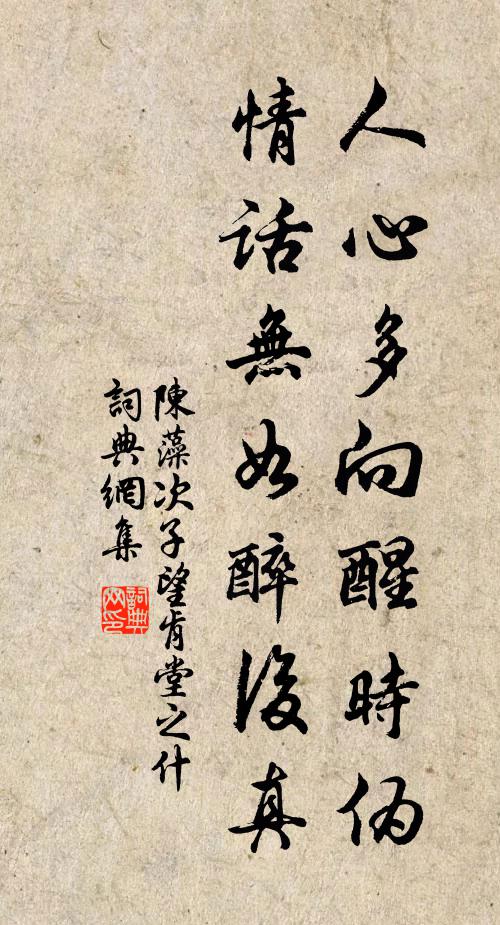 人心多向醒時偽
情話無如醉後真
陳藻次子望肯堂之什
詞典網集
詞典网印